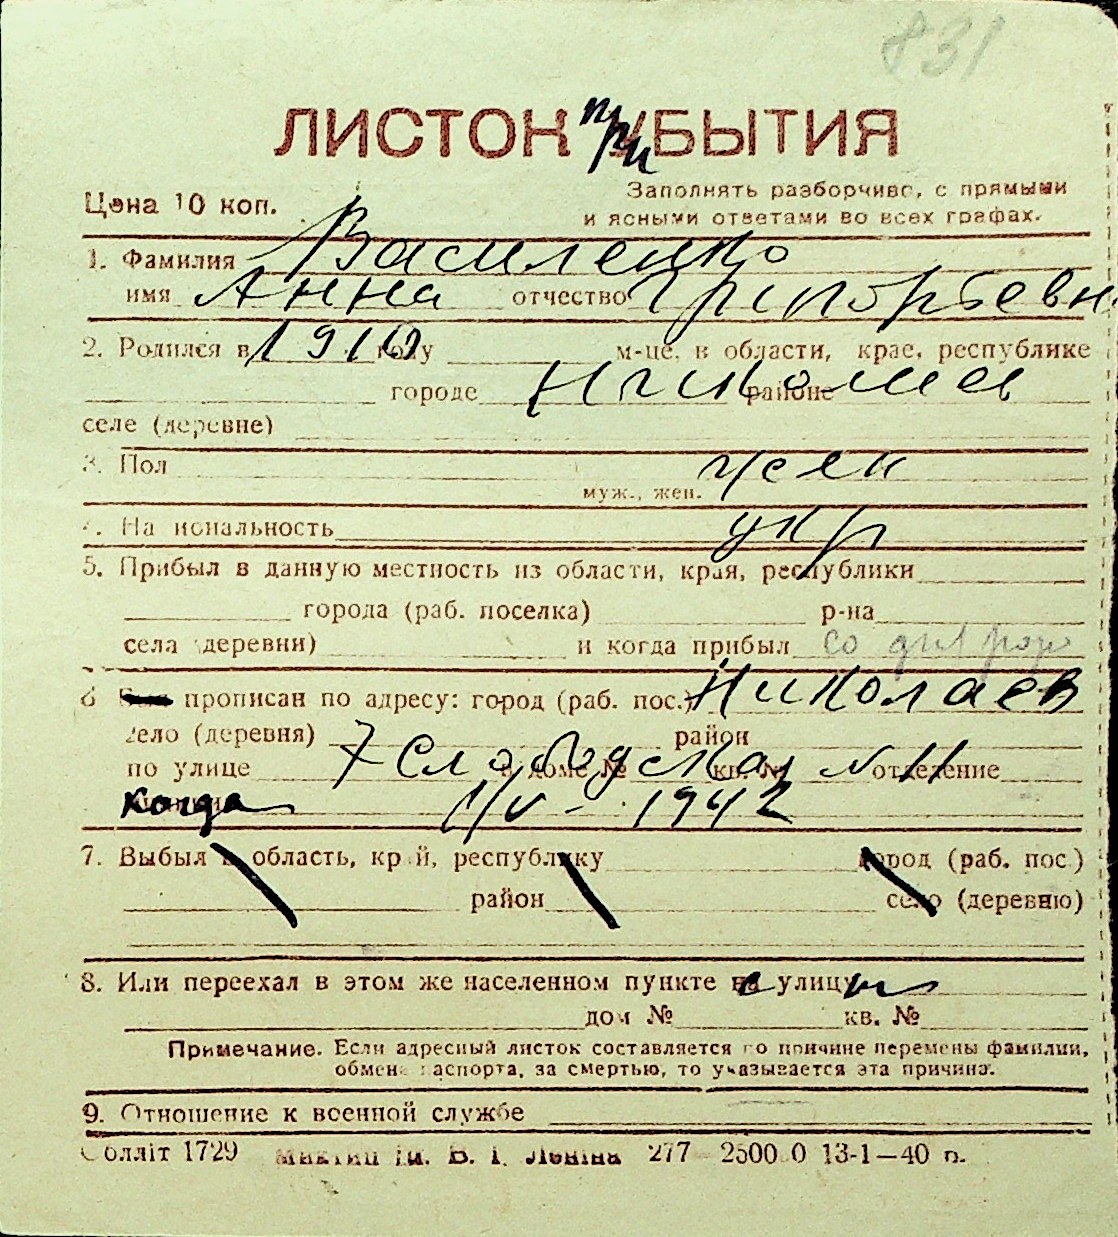 831
ЛИСТОК прибЫТИЯ
Цена 10 коп.
Заполнять разборчиво, с прямыми
и ясными ответами во всех графах.
1. Фамилия Василенко
имя Анна отчество Григорьевн
2. Родился в 1910 году м-це, в области, крае, республике
городе Николаев районе
селе (деревне)
3. Пол жен
муж., жен.
4. Национальность укр
5. Прибыл в данную местность из области, края, республики
города (раб. поселка) р-на
села (деревни) и когда прибыл со дня рож
6 прописан по адресу: город (раб. пос.) Николаев
село (деревня) район
по улице 7 Слободская в доме № кв. № N 11 отделение
когда 1/V - 1942
7. Выбыл в область, край, республику город (раб. пос.)
район село (деревню)
8. Или переехал в этом же населенном пункте с улицы
дом № кв. №
Примечание. Если адресный листок составляется по причине перемены фамилии,
обмена паспорта, за смертью, то указывается эта причина.
9. Отношение к военной службе
Облліт 1729 ім. В. І. Леніна 277 2500.0 13-1—40 р.